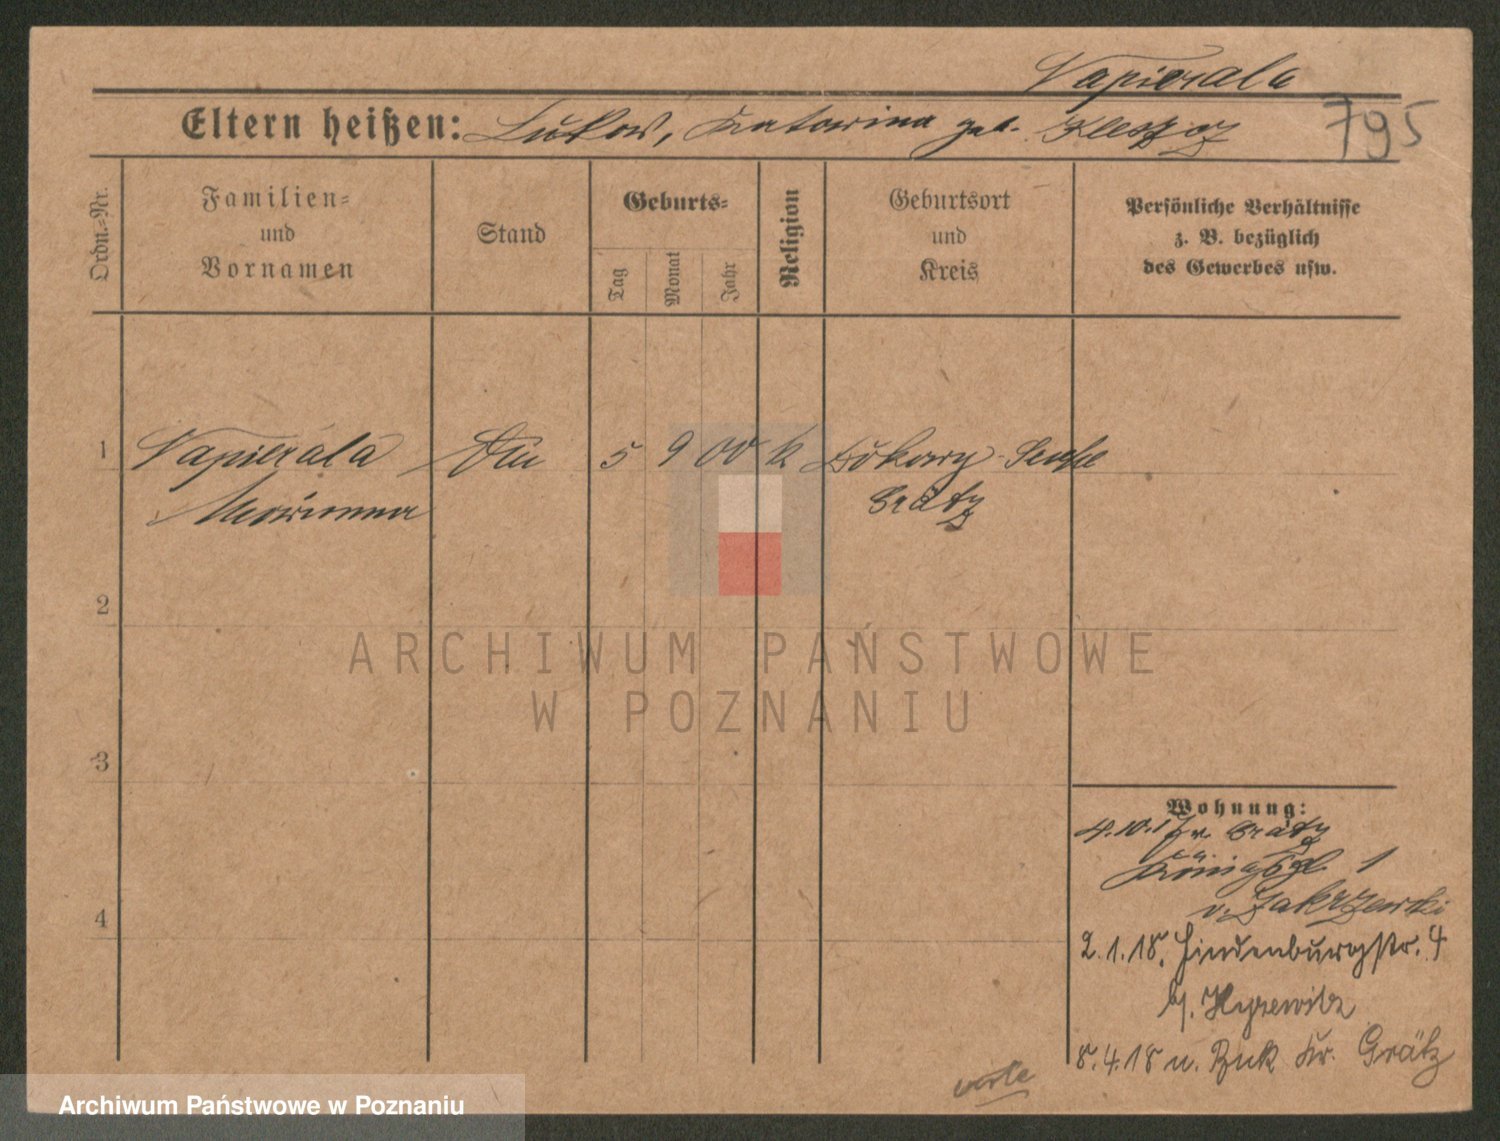 Napierala
Eltern heißen: Lukas, Katarina geb.
795
Ordn.=Nr.
Familien=
und
Vornamen
Stand
Geburts=
Tag
Monat
Jahr
Religion
Geburtsort
und
Kreis
Persönliche Verhältnisse
z. B. bezüglich
des Gewerbes usw.
1 Napierala 5 9 00 k
Marianna Grätz
2
3
4
ARCHIWUM PAŃSTWOWE
W POZNANIU
Wohnung:
4.10.17 v. Grätz
1
v. Zakrzewski
2.1.18. Hindenburgstr. 4
b/.
8.4.18 n. Buk Kr. Grätz
Archiwum Państwowe w Poznaniu